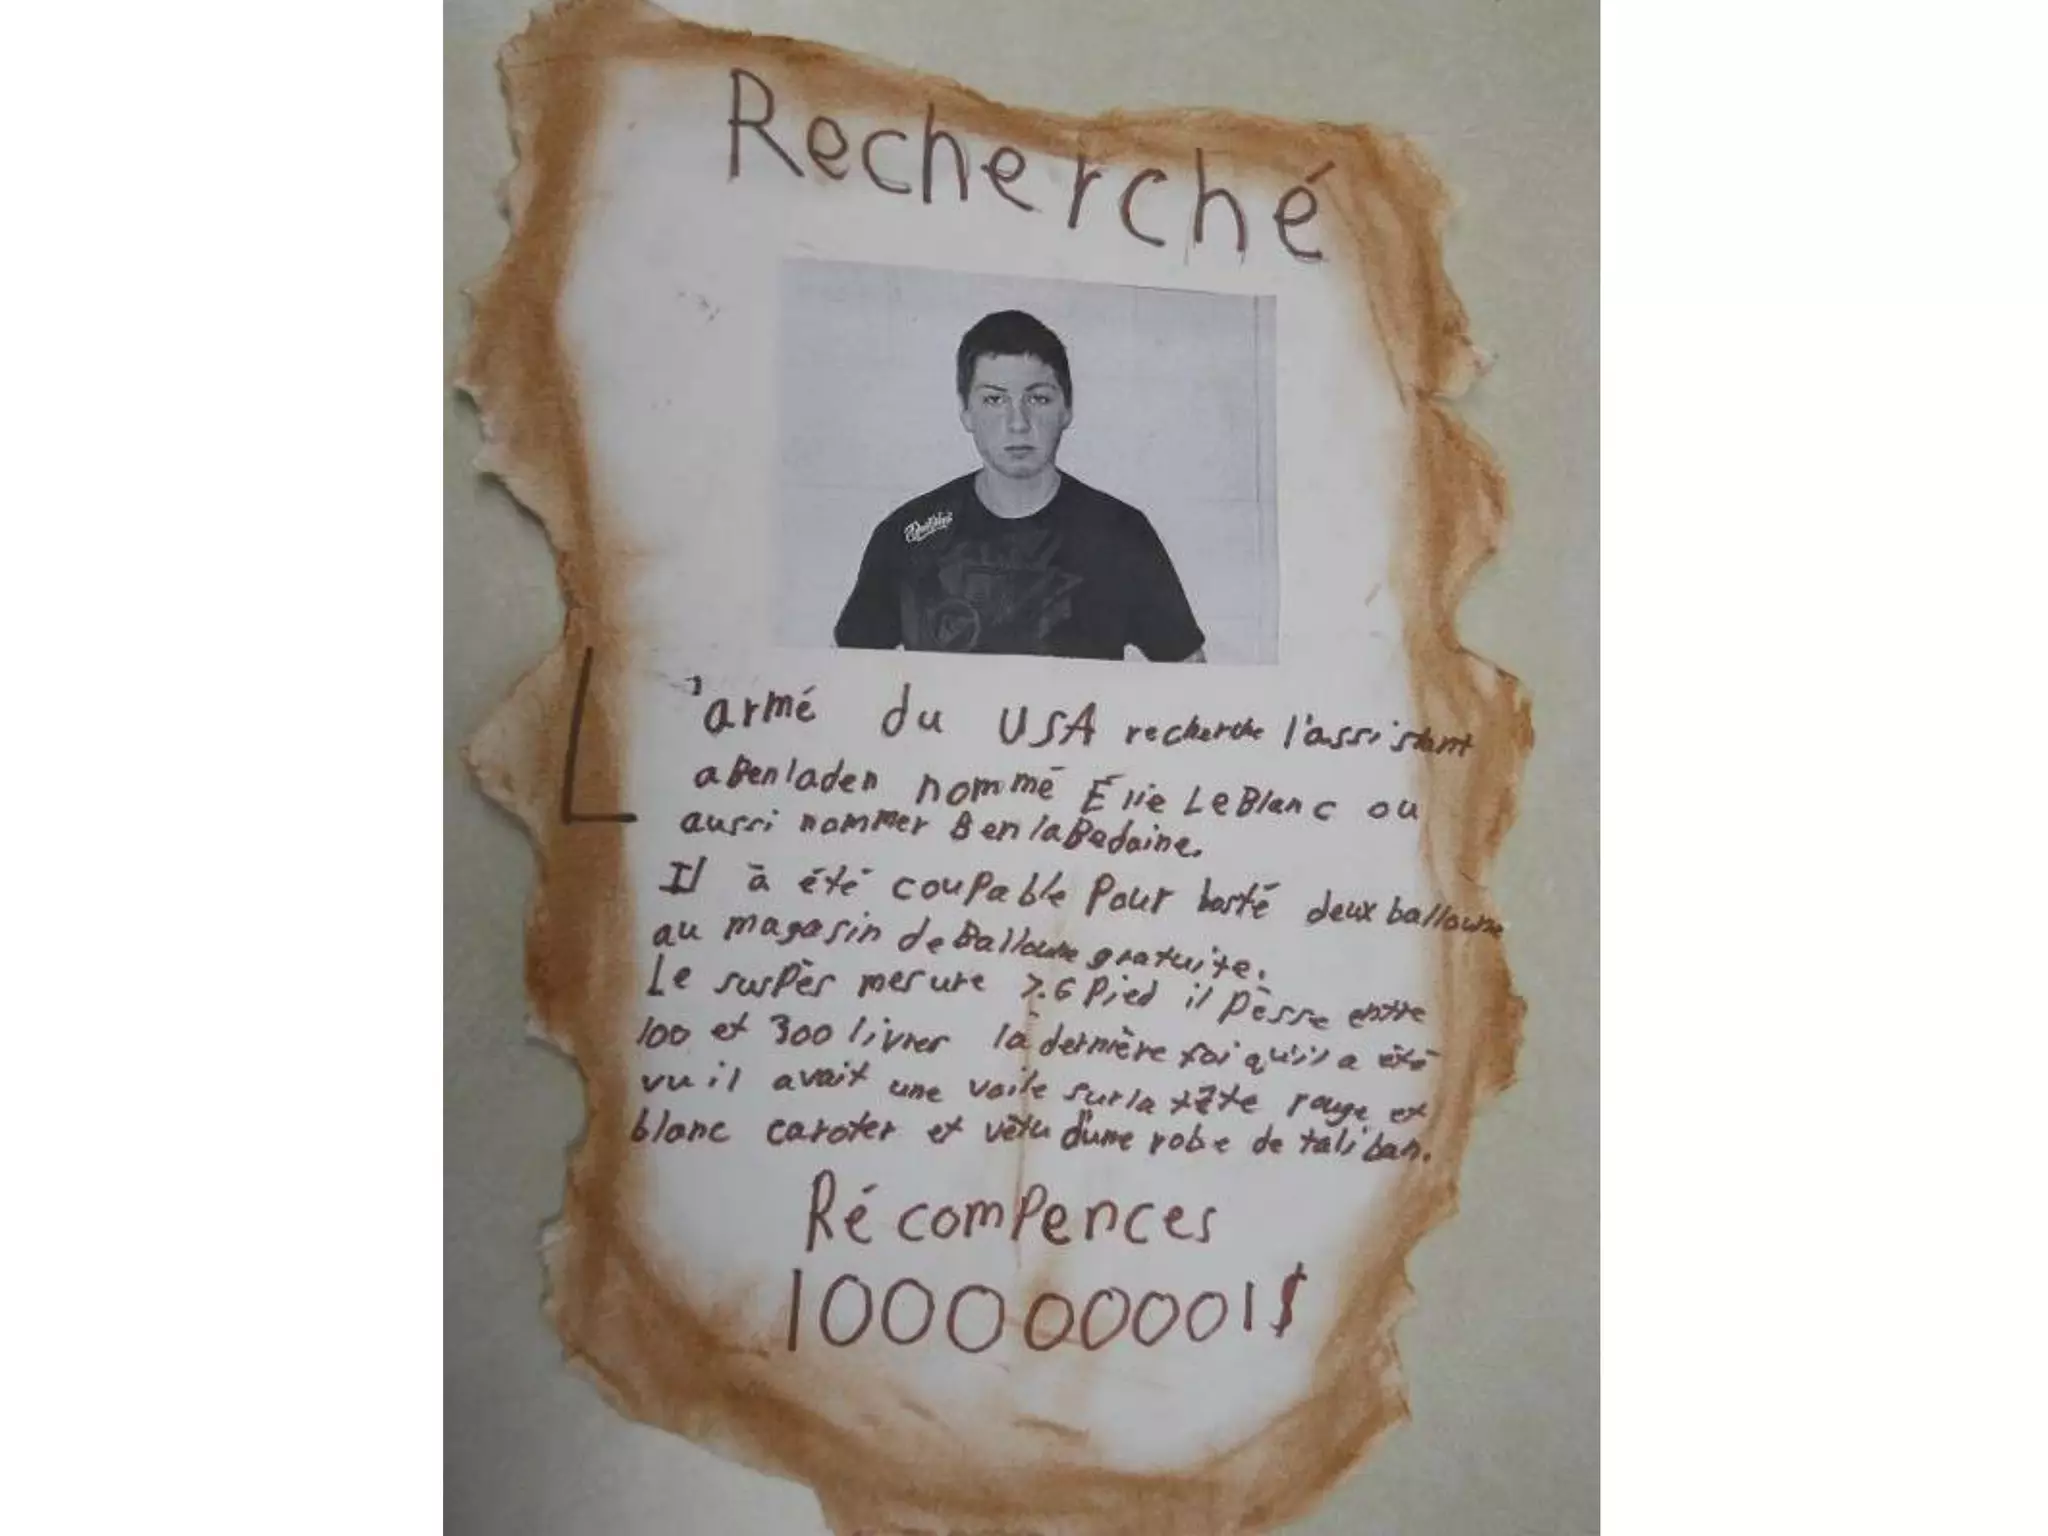 Recherché
L'armé du USA recherche l'assistant
a Ben laden nommé Élie LeBlanc ou
aussi nommer Ben la Bedaine.
Il à été coupable pour bosté deux balloune
au magasin de Balloune gratuite.
Le suspès mesure 7.6 pied il pèsse entre
100 et 300 livrer la dernière foi qu'il a été
vu il avait une voile sur la tête rouge et
blanc caroter et vêtu d'une robe de taliban.
Récompences
100000001$